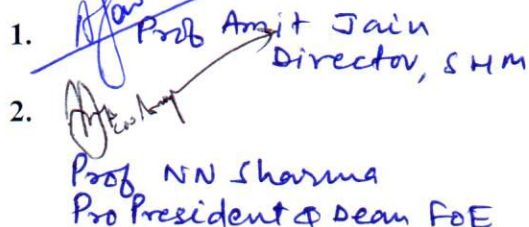 1. Prof Amit Jain
Director, SHM
2.
Prof NN Sharma
Pro President & Dean FoE